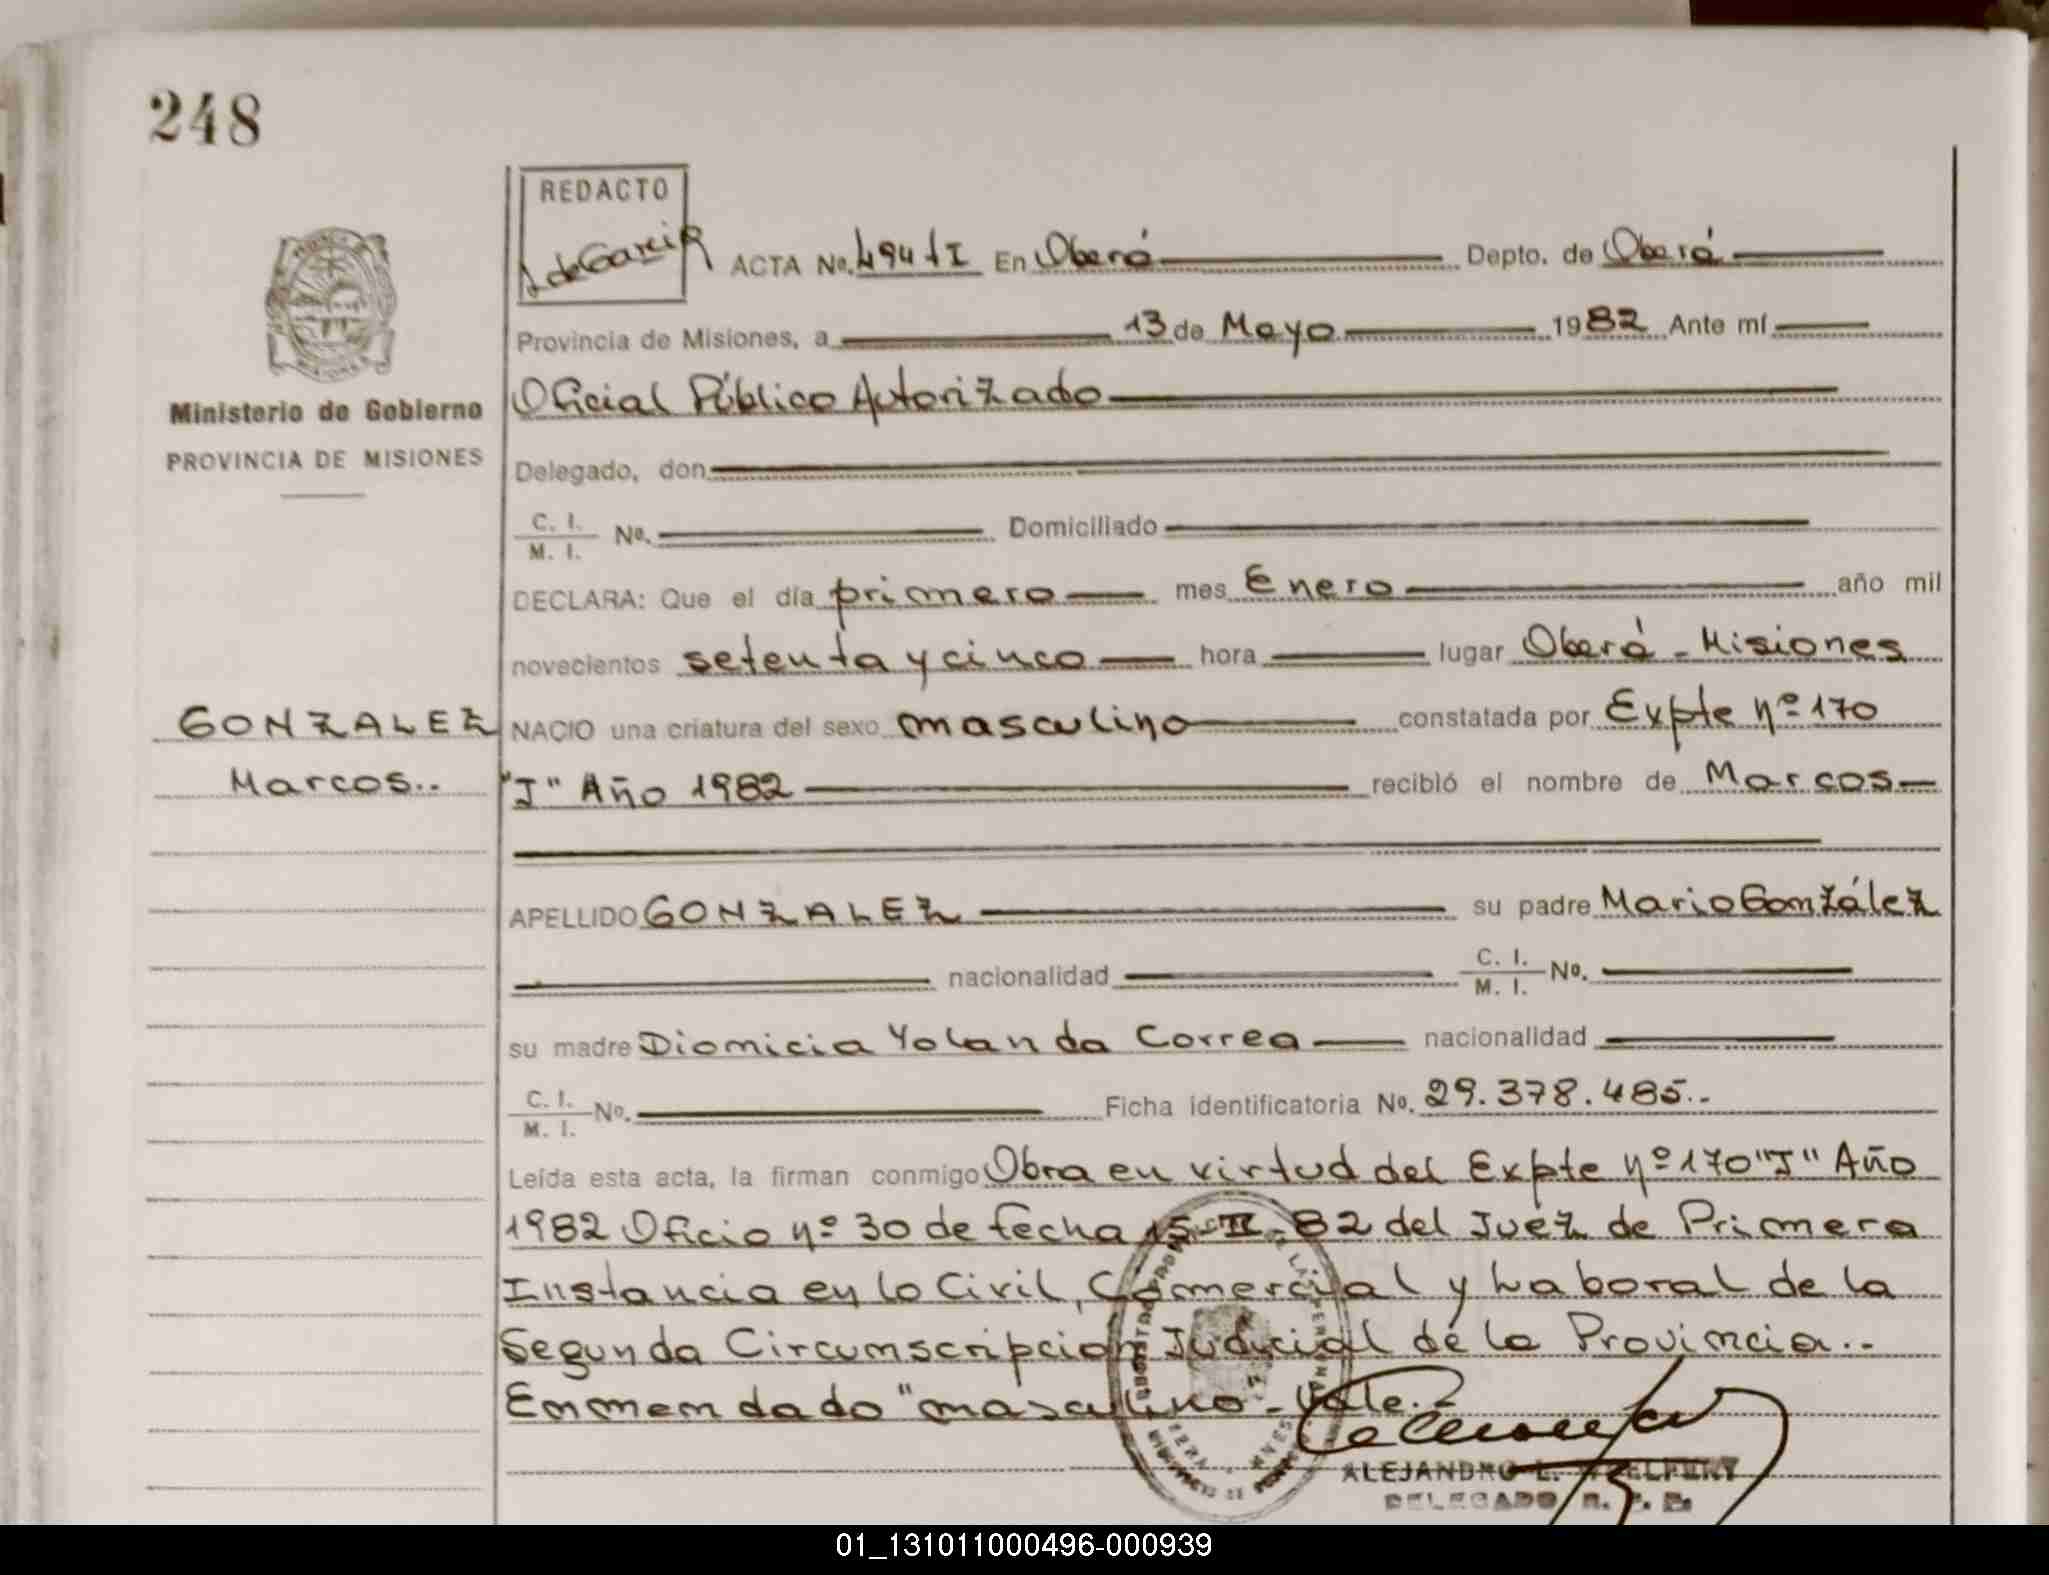 248
REDACTO
de Garcia
ACTA No. 494 tI En Oberá Depto. de Oberá
Provincia de Misiones, a 13 de Mayo 1982 Ante mí
Oficial Público Autorizado
Ministerio de Gobierno
PROVINCIA DE MISIONES
Delegado, don
C. I.
M. I. No. Domiciliado
DECLARA: Que el día primero mes Enero año mil
novecientos setenta y cinco hora lugar Oberá - Misiones
GONZALEZ
Marcos..
NACIO una criatura del sexo masculino constatada por Expte nº 170
"J" Año 1982 recibió el nombre de Marcos
APELLIDO GONZALEZ su padre Mario González
nacionalidad C. I.
M. I. No.
su madre Diomicia Yolanda Correa nacionalidad
C. I.
M. I. No. Ficha identificatoria No. 29.378.485..
Leída esta acta, la firman conmigo Obra en virtud del Expte nº 170 "J" Año
1982 Oficio nº 30 de fecha 15-II-82 del Juéz de Primera
Instancia en lo Civil, Comercial y Laboral de la
Segunda Circumscripcion Judicial de la Provincia..
Enmendado "masculino - Vale.-
ALEJANDRO L.
DELEGADO R. P. E.
01_131011000496-000939